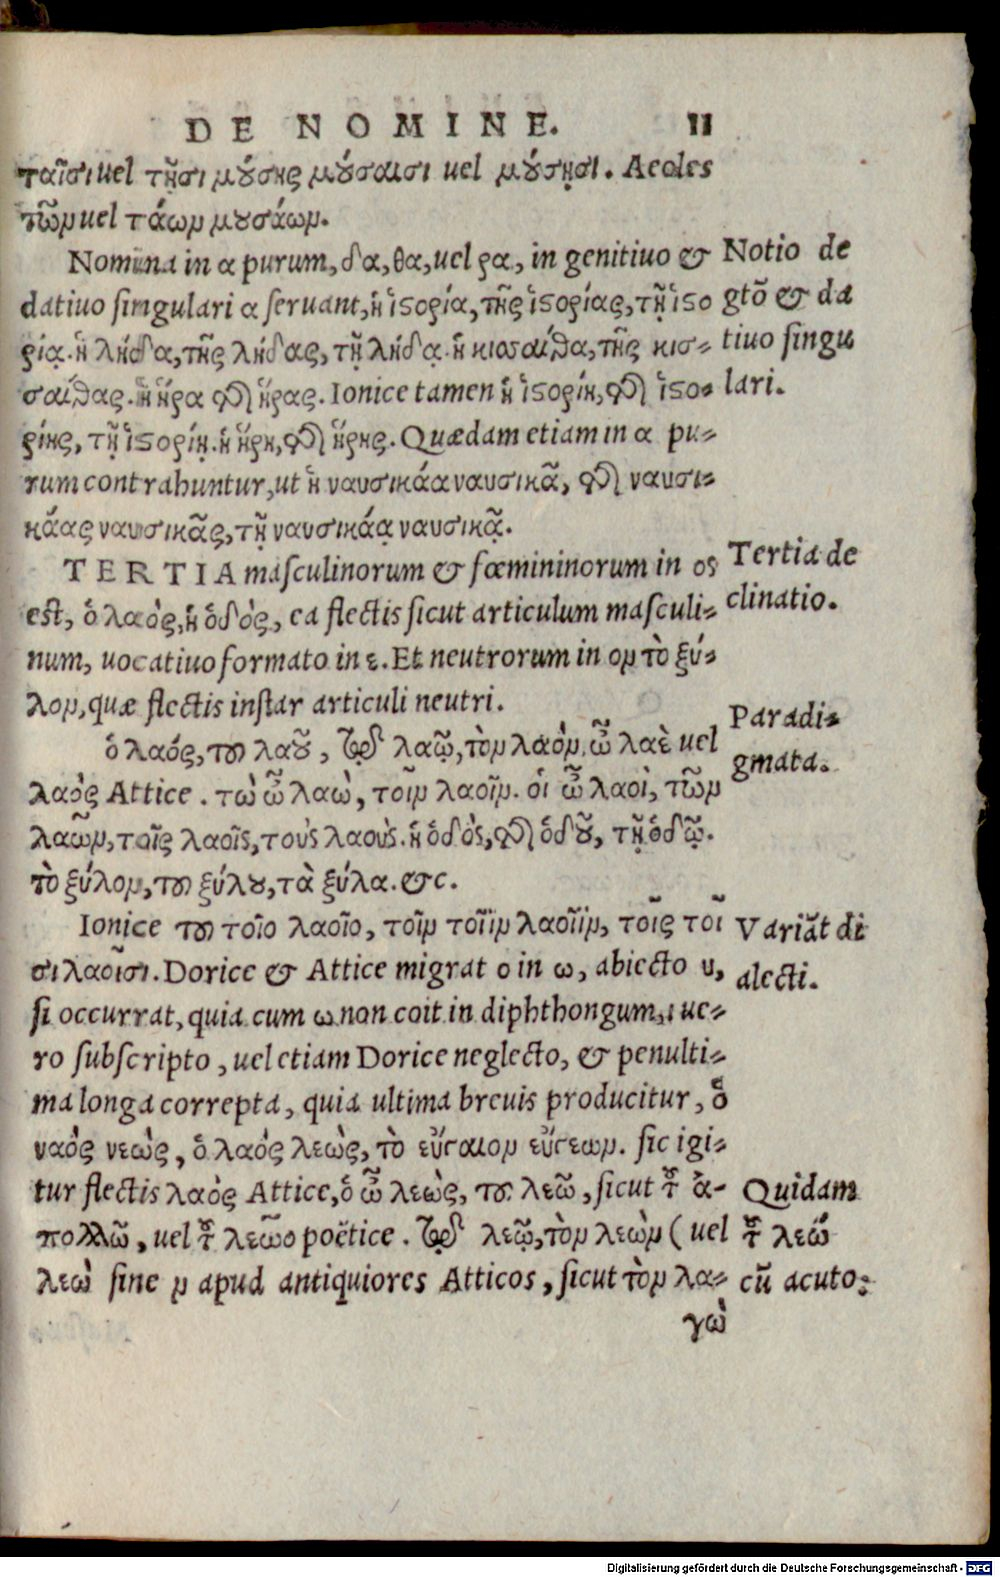 DE NOMINE. 11
ταῖσι uel τῇσι μούσῃς μούσαισι uel μούσῃσι. Aeoles
τῶν uel τάων μουσάων.
Nomina in α purum, δα, θα, uel ρα, in genitiuo &
datiuo singulari α seruant, ἡ ἱστορία, τῆς ἱστορίας, τῇ ἱστο
ρίᾳ. ἡ λήδα, τῆς λήδας, τῇ λήδᾳ. ἡ κισσαίθα, τῆς κισ-
σαίθας. ἡ ἥρα τῆς ἥρας. Ionice tamen ἡ ἱστορίη, τῆς ἱστο-
ρίης, τῇ ἱστορίῃ. ἡ ἥρη, τῆς ἥρης. Quædam etiam in α pu-
rum contrahuntur, ut ἡ ναυσικάα ναυσικᾶ, τῆς ναυσι-
κάας ναυσικᾶς, τῇ ναυσικάᾳ ναυσικᾷ.
TERTIA masculinorum & fœmininorum in ος
est, ὁ λαὸς, ἡ ὁδὸς, ea flectis sicut articulum masculi-
num, uocatiuo formato in ε. Et neutrorum in ον τὸ ξύ-
λον, quæ flectis instar articuli neutri.
ὁ λαός, τοῦ λαοῦ, τῷ λαῷ, τὸν λαόν. ὦ λαὲ uel
λαὸς Attice. τὼ ὦ λαὼ, τοῖν λαοῖν. οἱ ὦ λαοὶ, τῶν
λαῶν, τοῖς λαοῖς, τοὺς λαούς. ἡ ὁδὸς, τῆς ὁδοῦ, τῇ ὁδῷ.
τὸ ξύλον, τοῦ ξύλου, τὰ ξύλα. &c.
Ionice τοῦ τοῖο λαοῖο, τοῖν τοῖϊν λαοῖϊν, τοῖς τοῖ
σι λαοῖσι. Dorice & Attice migrat ο in ω, abiecto υ,
si occurrat, quia cum ω non coit in diphthongum, ι ue-
ro subscripto, uel etiam Dorice neglecto, & penulti-
ma longa correpta, quia ultima breuis producitur, ὁ
ναὸς νεὼς, ὁ λαὸς λεὼς, τὸ εὔγαιον εὔγεων. sic igi-
tur flectis λαὸς Attice, ὁ ὦ λεὼς, τοῦ λεῶ, sicut τοῦ ἀ-
πολλῶ, uel τοῦ λεῶο poëtice. τῷ λεῷ, τὸν λεὼν (uel
λεὼ sine ν apud antiquiores Atticos, sicut τὸν λα-
γὼ
Notio de
gtõ & da
tiuo singu
lari.
Tertia de
clinatio.
Paradi-
gmata.
Variãt di
alecti.
Quidam
τοῦ λεώ
cũ acuto.
Digitalisierung gefördert durch die Deutsche Forschungsgemeinschaft - DFG